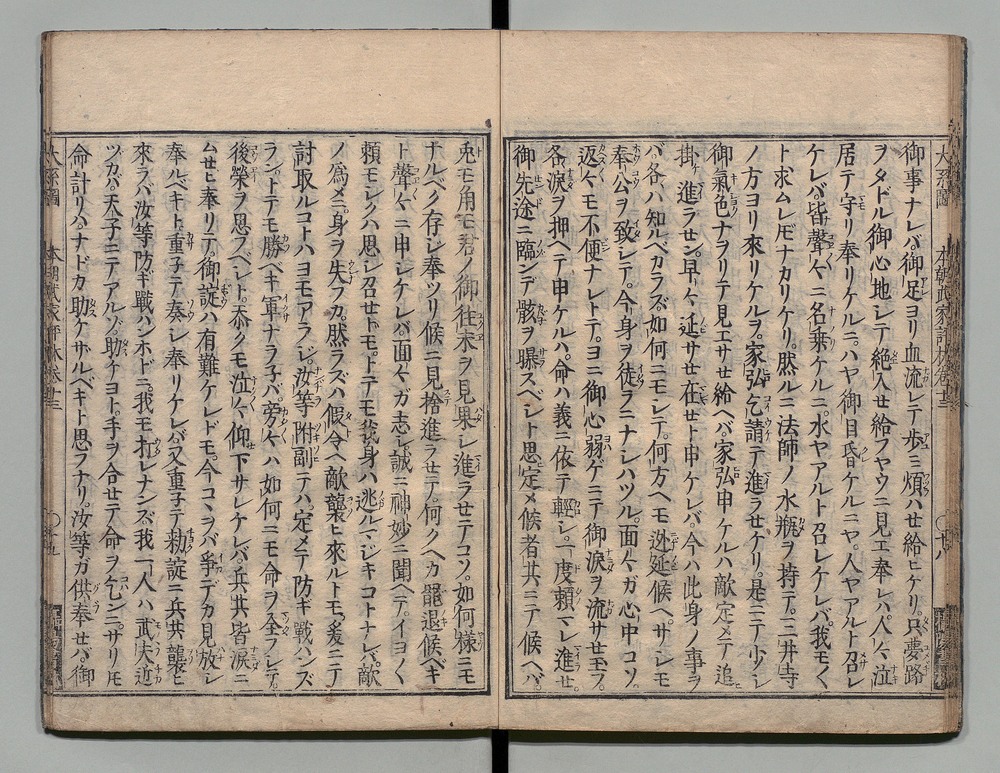 御事ナレバ御足ヨリ血流レテ歩ミ煩ハせ給ヒケリ。只夢路
ヲタドル御心地シテ絶入せ給フヤウニ見エ奉レバ人々泣
居テ守リ奉リケルニハヤ御目昏ケルニヤ。人ヤアルト召レ
ケレバ皆聲々ニ名乗ケルニ水ヤアルト召レケレバ我モ〱
ト求ムレドモナカリケリ。然ルニ法師ノ水瓶ヲ持テ三井寺
ノ方ヨリ來リケルヲ家弘乞請テ進ラせケリ。是ニテ少シ
御氣色ナヲリテ見エサせ給ヘバ家弘申ケルハ敵定メテ追
掛ケ進ラせン。早々延サせ在せト申ケレバ今ハ此身ノ事ヲ
バ各ハ知ルベカラズ。如何ニモシテ何方ヘモ迯延候ヘ。サシモ
奉公ヲ致シテ今身ヲ徒ラニナシハツル面々ガ心中コソ
返々モ不便ナレトテ。ヨニ御心弱ゲニテ御涙ヲ流サせ玉フ。
各涙ヲ押ヘテ申ケルハ命ハ義ニ依テ輕シ。一度頼マレ進せ。
御先途ニ臨ンデ骸ヲ曝スベシト思定メ候者共ニテ候ヘバ。
大系圖 本朝武家評林卷十三 〇十八
兎モ角モ君ノ御往末ヲ見果シ進ラせテコソ。如何樣ニモ
ナルベク存シ奉ツリ候ニ見捨進ラせテ何クヘカ罷退候ベキ
ト聲々ニ申シケレバ面々ガ志シ誠ニ神妙ニ聞ヘテ。イヨ〱
頼モシクハ思シ召せドモ。トテモ我身ハ逃ルマジキコトナレバ敵
ノ爲メニ身ヲ失フカ。然ラズハ假令ヘ敵襲ヒ來ルトモ。爰ニテ
討取ルコトハヨモアラジ。汝等附副テハ定メテ防ギ戰ハンズ
ラン。トテモ勝ベキ軍ナラ子バ旁々ハ如何ニモ命ヲ全フシテ。
後榮ヲ思フベシト。忝クモ泣々仰下サレケレバ兵共皆涙ニ
ムせヒ奉リテ。御諚ハ有難ケレドモ。今コヽヲバ爭デカ見放シ
奉ルベキト重子テ奏シ奉リケレバ又重子テ勅諚ニ兵共襲ヒ
來ラバ汝等防ギ戰ハンホドニ。我モ打レナンズ。我一人ハ武夫近
ツカバ天子ニテアルゾ。助ケヨト。手ヲ合せテ命ヲ乞ンニ。サリトモ
命計リハナドカ助ケザルベキト思フナリ。汝等ガ供奉せバ御
大系圖 本朝武家評林卷十三